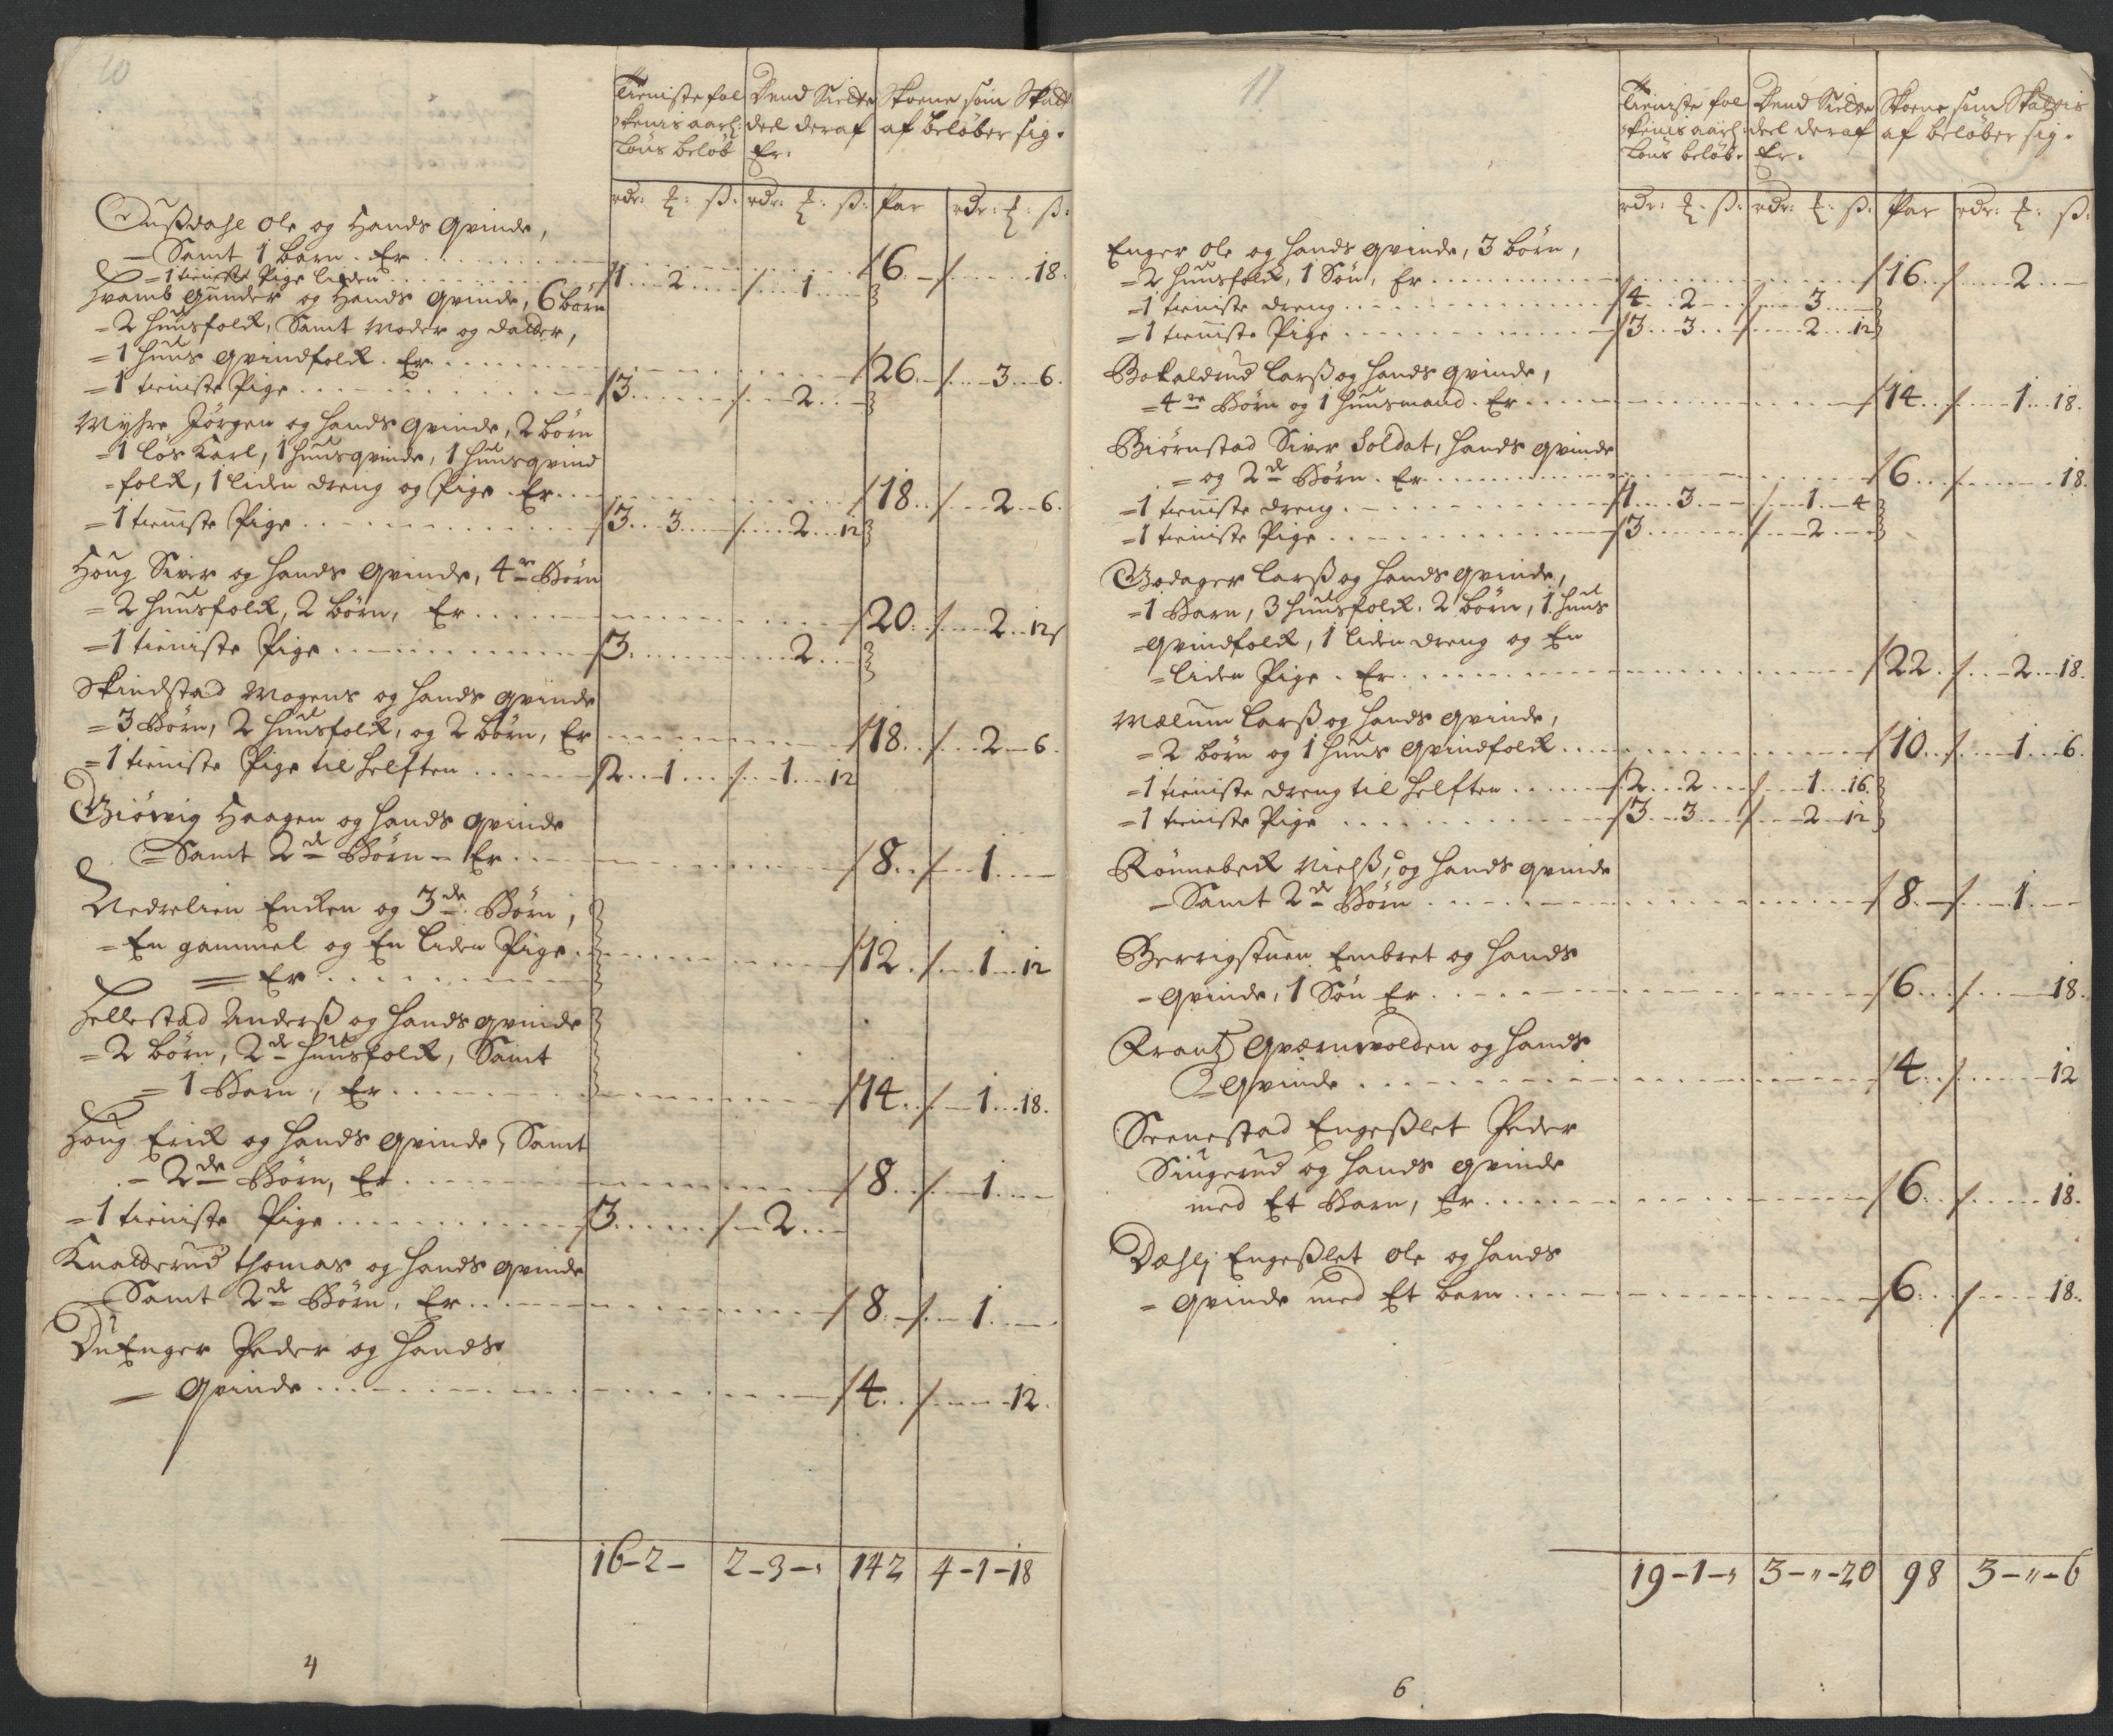 10
Tieniste fol Dend Siette Skoene som Skatt
kenis aarl: deel deraf af beløber sig.
Løns beløb Er.
rdr: ß: rdr: ß: Par rdr: ß:
Dußdahl Ole og Hands Qvinde,
- Samt 1 barn. Er 6 18.
= 1 tieniste Pige liden 1 2 1
Hvamb Gunder og Hands Qvinde, 6 børn
= 2 huusfolk, Samt Moder og datter,
= 1 huus Qvindfolk. Er 26 3 6.
= 1 tieniste Pige 3 2
Myhre Jørgen og hands Qvinde, 2 børn
= 1 løs Karl, 1 huusqvinde, 1 huusqvind
= folk, 1 liden dreng og Pige Er 18 2 6.
= 1 tieniste Pige 3 3 2 12
Houg Siver og hands Qvinde, 4re Børn
= 2 huusfolk, 2 børn, Er 20 2 12
= 1 tieniste Pige 3 2
Skindstad Mogens og hands Qvinde
= 3 Børn, 2 huusfolk, og 2 børn, Er 18 2 6.
= 1 tieniste Pige til helften 2 1 1 12
Giøvig Haagen og hands Qvinde
= Samt 2de Børn - Er 8 1
Nedrelien Enken og 3de Børn,
= En gammel og En liden Pige
= Er 12 1 12
Hellestad Anderß og hands Qvinde
= 2 børn, 2de huusfolk, Samt
= 1 Barn, Er 14 1 18.
Houg Erik og hands Qvinde, Samt
- 2de Børn, Er 8 1
= 1 tieniste Pige 3 2
Knatterud Thomas og hands Qvinde
- Samt 2de Børn. Er 8 1
DuEnger Peder og hands
= Qvinde 4 12.
16-2- 2-3-" 142 4-1-18
4
11
Tieniste fol Dend Siette Skoene som Skattis
kenis aarl: deel deraf af beløber sig.
Løns beløb. Er.
rdr: ß: rdr: ß: Par rdr: ß:
Enger Ole og hands Qvinde, 3 børn,
= 2 huusfolk, 1 Søn, Er 16 2
= 1 tieniste dreng 4 2 3
= 1 tieniste Pige 3 3 2 12
Bokalderud Larß og hands Qvinde,
= 4re Børn og 1 huusmand. Er 14 1 18.
Biørnstad Siver Soldat, hands Qvinde
= og 2de Børn. Er 6 18.
= 1 tieniste dreng 1 3 1 4
= 1 tieniste Pige 3 2
Bodager Larß og hands Qvinde,
= 1 Barn, 3 huusfolk. 2 børn, 1 huus
= Qvindfolk, 1 liden dreng og En
= liden Pige. Er 22 2 18.
Mælum Larß og hands Qvinde,
= 2 børn og 1 huus Qvindfolk 10 1 6.
= 1 tieniste dreng til helften 2 2 1 16.
= 1 tieniste Pige 3 3 2 12
Rønnebek Nielß, og hands Qvinde
- Samt 2de Børn 8 1
Berrigstuen Embret og hands
- Qvinde, 1 Søn Er 6 18.
Frantz Qværnvolden og hands
= Qvinde 4 12
Seenestad Engeßlet Peder
Siugerud og hands Qvinde
med Et Barn, Er 6 18.
Dæhly Engeßlet Ole og hands
= Qvinde med Et barn 6 18.
19-1-" 3-"-20 98 3-"-6
6